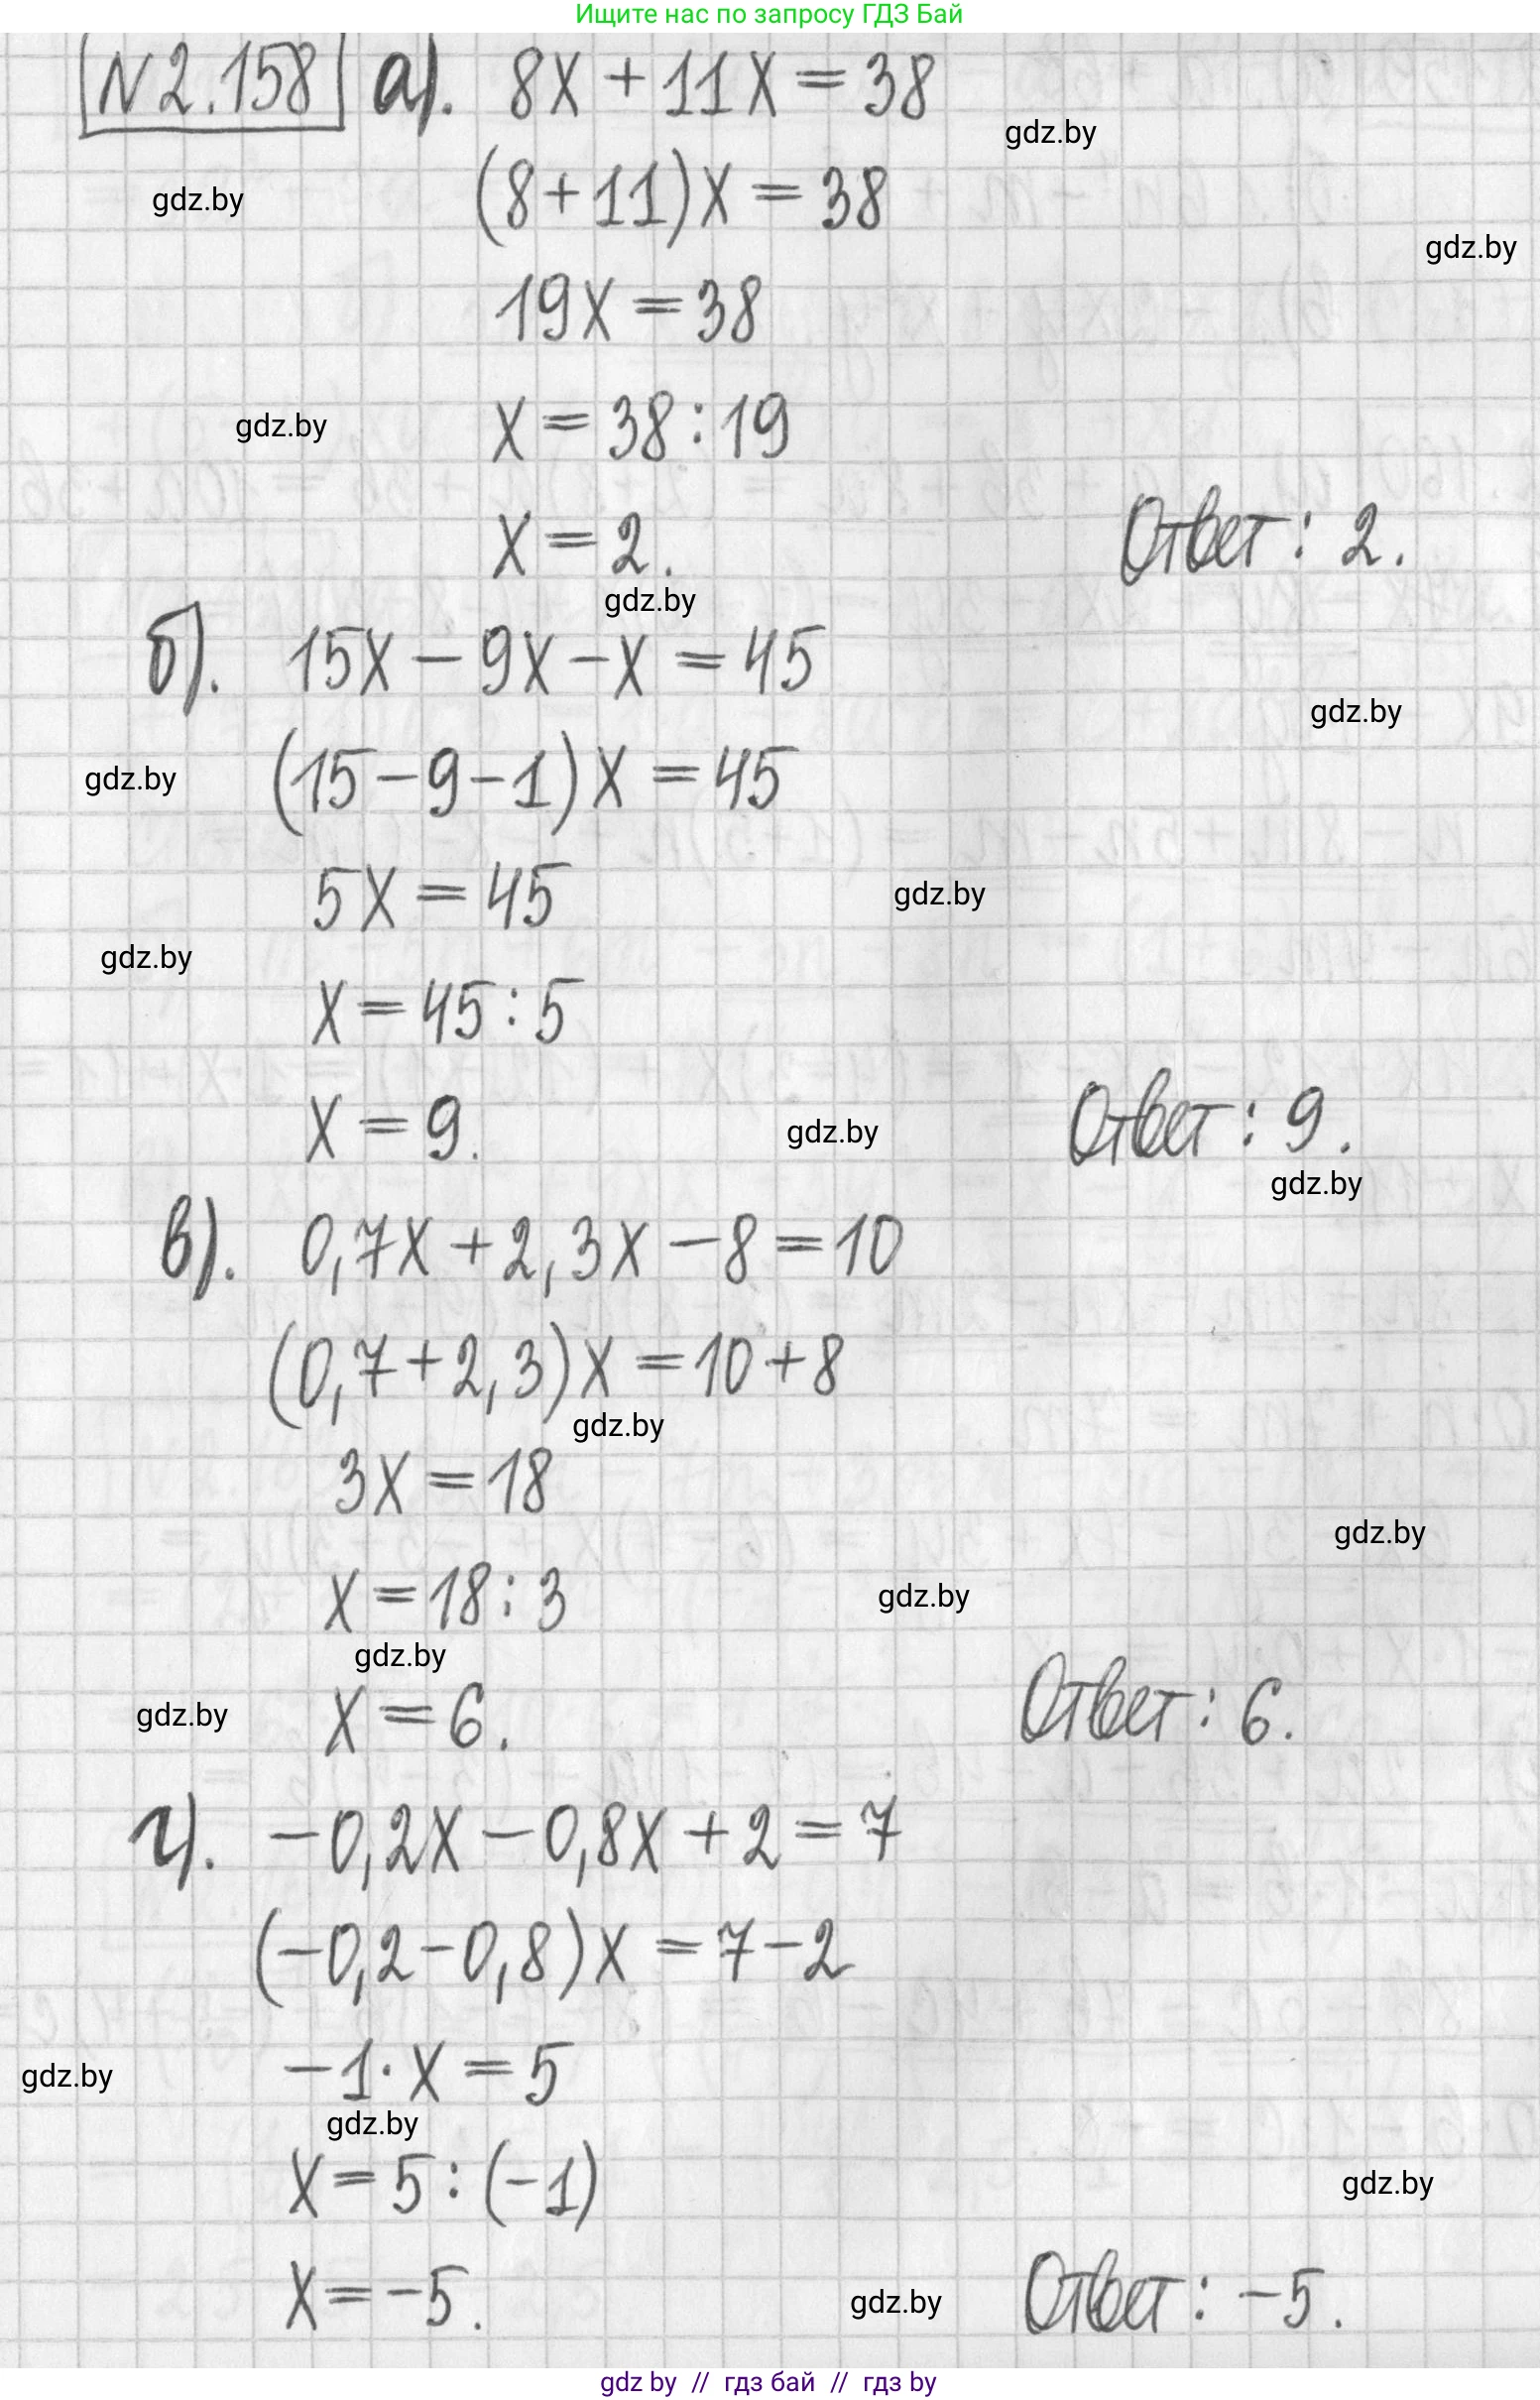 Ищите нас по запросу ГДЗ Бай
N 2.158 а). 8x + 11x = 38
gdz.by
(8+11)x = 38
gdz.by
gdz.by
19x = 38
x = 38 : 19
gdz.by
x = 2. Ответ: 2.
gdz.by
б). 15x - 9x - x = 45
gdz.by
(15-9-1)x = 45
gdz.by
5x = 45
gdz.by
gdz.by
x = 45 : 5
x = 9. Ответ: 9.
gdz.by
gdz.by
в). 0,7x + 2,3x - 8 = 10
(0,7+2,3)x = 10+8
gdz.by
3x = 18
gdz.by
x = 18 : 3
gdz.by
gdz.by
x = 6. Ответ: 6.
gdz.by
г). -0,2x - 0,8x + 2 = 7
(-0,2-0,8)x = 7-2
-1·x = 5
gdz.by
gdz.by
x = 5 : (-1)
gdz.by
x = -5. Ответ: -5.
gdz.by
gdz by // гдз бай // гдз by